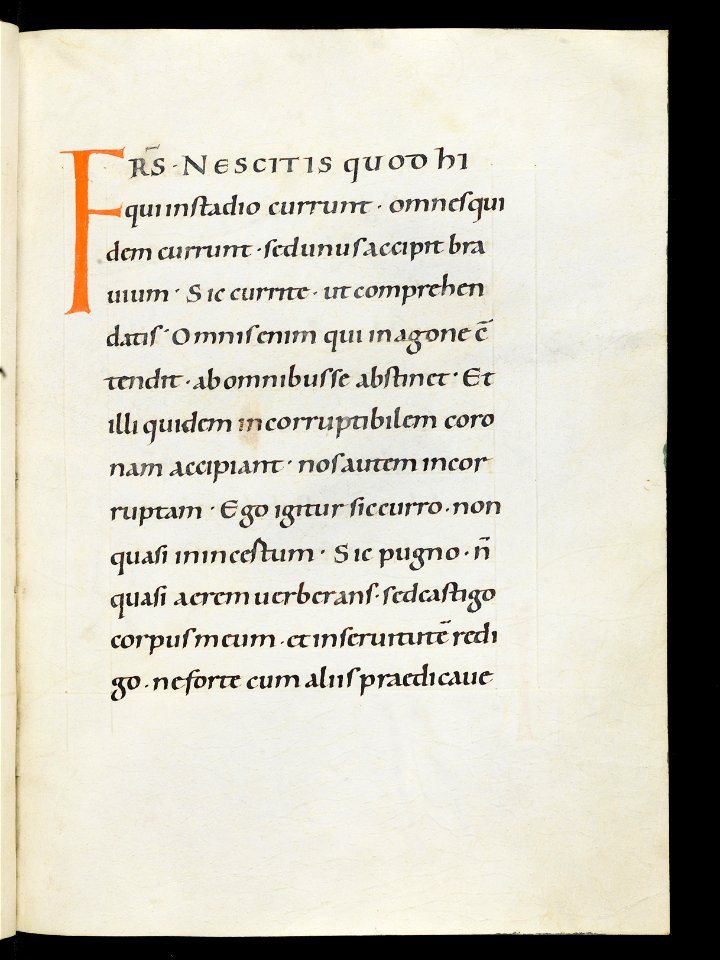 FR̄S · NESCITIS quod hi
qui in stadio currunt · omnes qui
dem currunt · sed unus accipit bra
uium · Sic currite · ut comprehen
datis · Omnis enim qui in agone c̄
tendit · ab omnibus se abstinet · Et
illi quidem incorruptibilem coro
nam accipiant · nos autem incor
ruptam · Ego igitur sic curro · non
quasi in incestum · Sic pugno · n̄
quasi aerem uerberans · sed castigo
corpus meum · et in seruitutē redi
go · ne forte cum aliis praedicaue